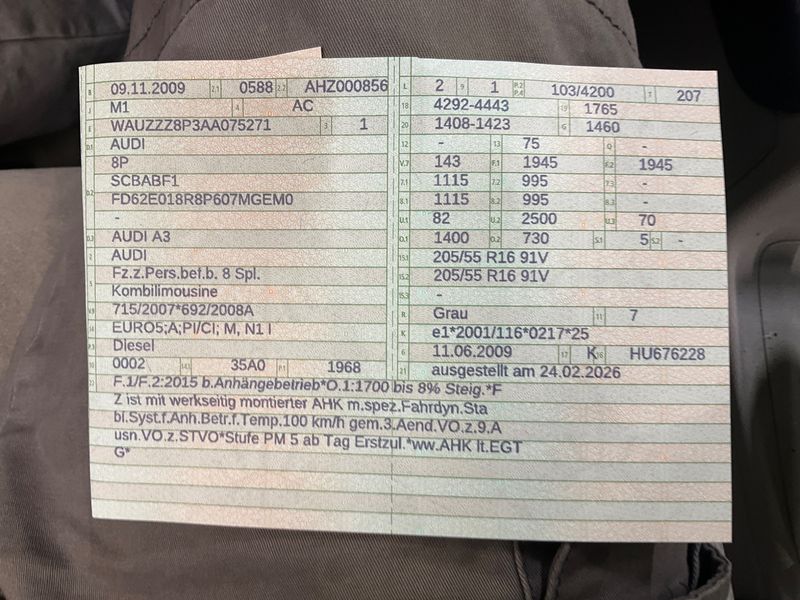 B 09.11.2009 2.1 0588 2.2 AHZ000856
J M1 4 AC
E WAUZZZ8P3AA075271 3 1
D.1 AUDI
8P
D.2 SCBABF1
FD62E018R8P607MGEM0
-
D.3 AUDI A3
2 AUDI
Fz.z.Pers.bef.b. 8 Spl.
Kombilimousine
V.9 715/2007*692/2008A
14 EURO5;A;PI/CI; M, N1 I
P.3 Diesel
10 0002 14.1 35A0 P.1 1968
L 2 9 1 P.2 P.4 103/4200 T 207
18 4292-4443 19 1765
20 1408-1423 G 1460
12 - 13 75 Q -
V.7 143 F.1 1945 F.2 1945
7.1 1115 7.2 995 7.3 -
8.1 1115 8.2 995 8.3 -
U.1 82 U.2 2500 U.3 70
O.1 1400 O.2 730 S.1 5 S.2 -
15.1 205/55 R16 91V
15.2 205/55 R16 91V
15.3 -
R Grau 11 7
K e1*2001/116*0217*25
6 11.06.2009 17 K 16 HU676228
21 ausgestellt am 24.02.2026
22 F.1/F.2:2015 b.Anhängebetrieb*O.1:1700 bis 8% Steig.*F
Z ist mit werkseitig montierter AHK m.spez.Fahrdyn.Sta
bl.Syst.f.Anh.Betr.f.Temp.100 km/h gem.3.Aend.VO.z.9.A
usn.VO.z.STVO*Stufe PM 5 ab Tag Erstzul.*ww.AHK lt.EGT
G*